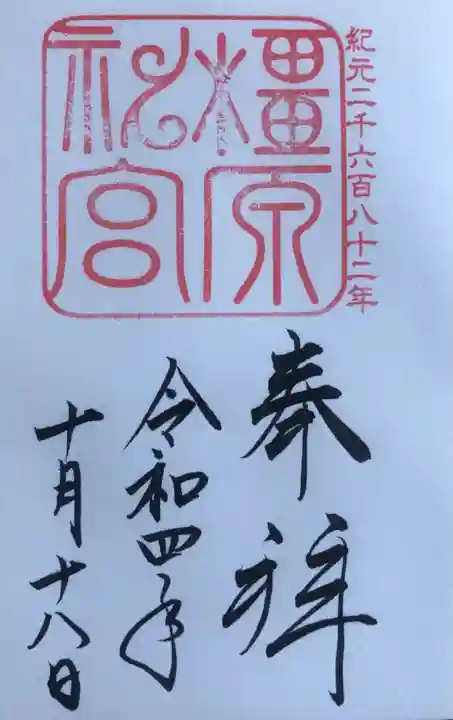 紀元二千六百八十二年
橿原
神宮
奉拝
令和四年
十月十八日